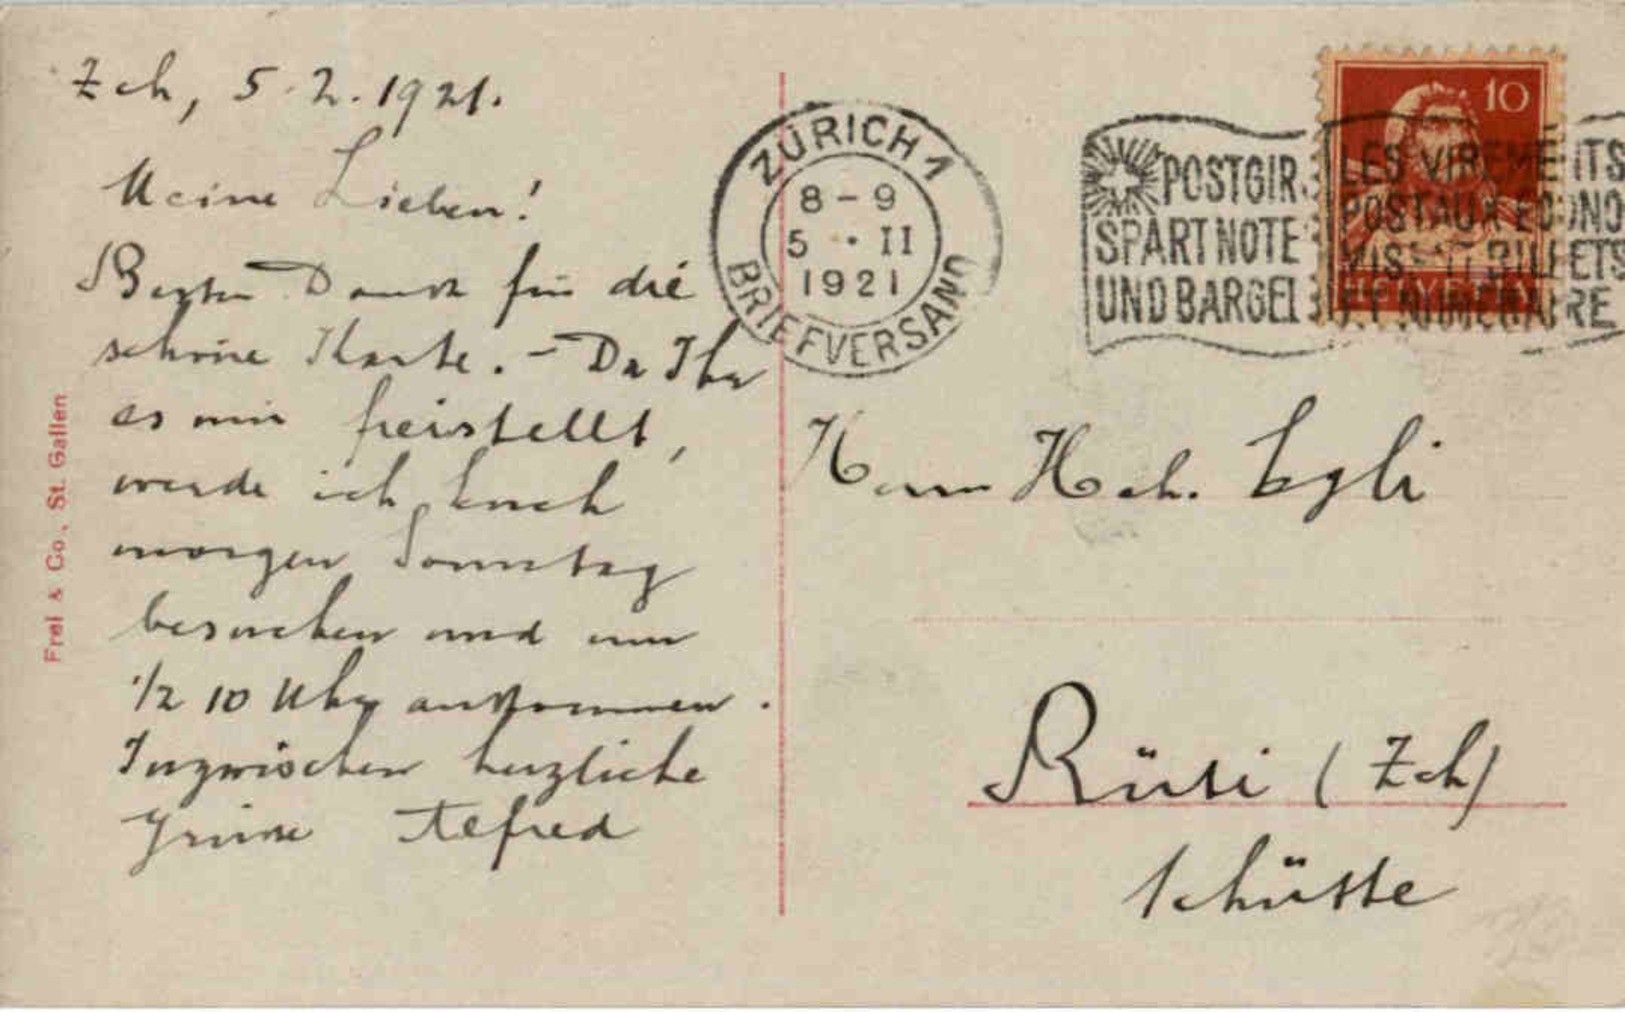 Zch, 5.2.1921.
Meine Lieben!
Besten Dank für die
schöne Karte. - Da Ihr
es mir freistellt,
werde ich Euch
morgen Sonntag
besuchen und um
1/2 10 Uhr ankommen.
Inzwischen herzliche
Grüsse Alfred
Frei & Co., St. Gallen
ZÜRICH 1
8-9
5 · II
1921
BRIEFVERSAND
POSTGIR
SPART NOTE
UND BARGEL
LES VIREMENTS
POSTAUX ECONO
MISENT BILLETS
ET NUMERAIRE
10
HELVETIA
Herrn Hch. Egli
Rüti (Zch)
Schütte